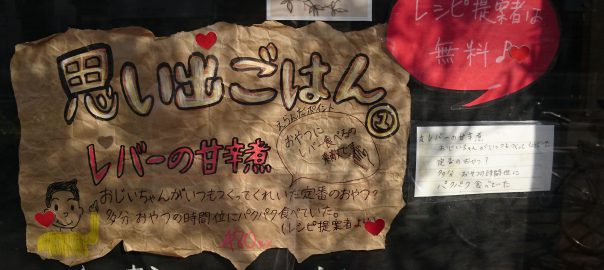 思い出ごはん
①
レシピ提案者は
無料♪
えらんだポイント
おやつに
レバー食べるの
素敵ですね
レバーの甘辛煮
おじいちゃんがいつもつくってくれていた定番のおやつ?
多分おやつの時間位にパクパク食べていた。
(レシピ提案者より)
レバーの甘辛煮
おじいちゃんがいつもつくってくれていた
定番のおやつ?
多分 おやつの時間位に
パクパク食べていた